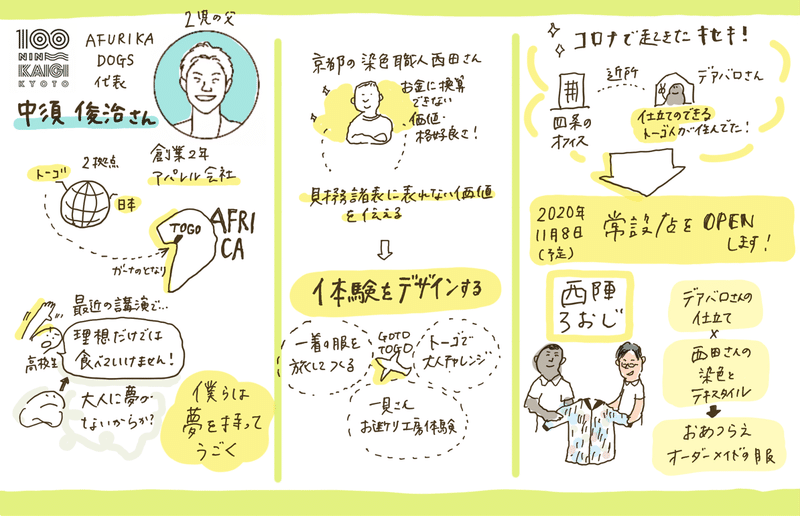 100
NIN
KAIGI
KYOTO
AFURIKA
DOGS
代表
2児の父
中須 俊治さん
創業2年
アパレル会社
2拠点
トーゴ
日本
TOGO
AFRI
CA
ガーナのとなり
最近の講演で…
高校生
理想だけでは
食べていけません!
大人に夢が
ないからか?
僕らは
夢を持って
うごく
京都の染色職人西田さん
お金に換算
できない
価値・
格好良さ!
財務諸表に表れない価値
を伝える
体験をデザインする
一着の服を
旅してつくる
GOTO
TOGO
トーゴで
大人チャレンジ
一見さん
お断り工房体験
コロナで起きたキセキ!
近所
デアバロさん
四条の
オフィス
仕立てのできる
トーゴ人が住んでた!
2020年
11月8日
(予定)
常設店をOPEN
します!
西陣
ろおじ
デアバロさんの
仕立て
×
西田さんの
染色と
テキスタイル
おあつらえ
オーダーメイドの服